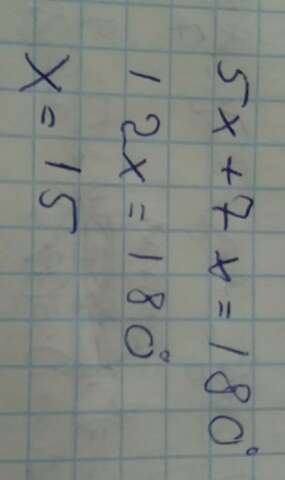 5x + 7x = 180°
12x = 180°
x = 15